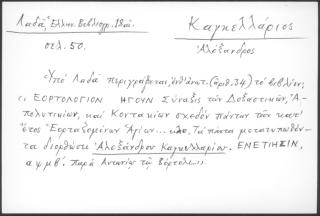 Λαδᾶ, Ἑλλην. Βιβλιογρ. 18 αἰ.
Καγκελλάριος
σελ. 50.
Ἀλέξανδρος
Ὑπὸ Λαδᾶ περιγράφεται, (ἀριθ. 34) τὸ βιβλίον:
" ΕΟΡΤΟΛΟΓΙΟΝ ΗΓΟΥΝ Σύναξις τῶν Δοξαστικῶν, Ἀ-
πολυτικίων, καὶ Κοντακίων σχεδὸν πάντων τῶν κατ'
ἔτος Ἑορταζομένων Ἁγίων... κλπ. Τὰ πάντα μετατυπωθέν-
τα διορθώσει Ἀλεξάνδρου Καγκελλαρίου. ΕΝΕΤΙΗΣΙΝ,
αψμβ'. παρὰ Ἀντωνίῳ τῷ Βόρτολι."